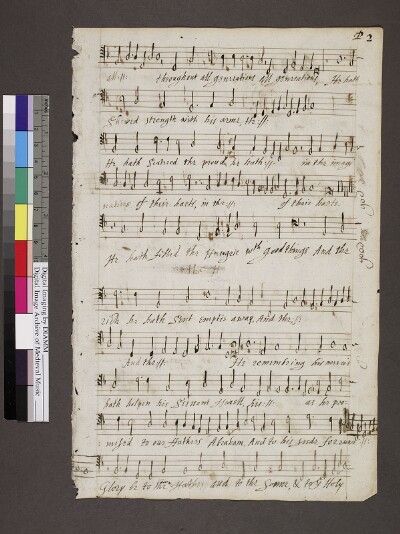 2
all :||: throughout all generations all generations, He hath
Shewed strength with his arme, He :||:
He hath Scatered the proud, he hath :||: in the imagi
nacions of their harts, in the :||: of their harts.
He hath filled the Hungrie wth good things And the
rich he hath Sent emptie away. And the :||:
And the :||: He remembring his mercie
hath holpen his Servant Israell, his :||: as he pro=
= mised to our Fathers Abraham, And to his seede for ever
Glory be to the father and to the Sonne, & to ye Holy
Digital Imaging by DIAMM
Digital Image Archive of Medieval Music